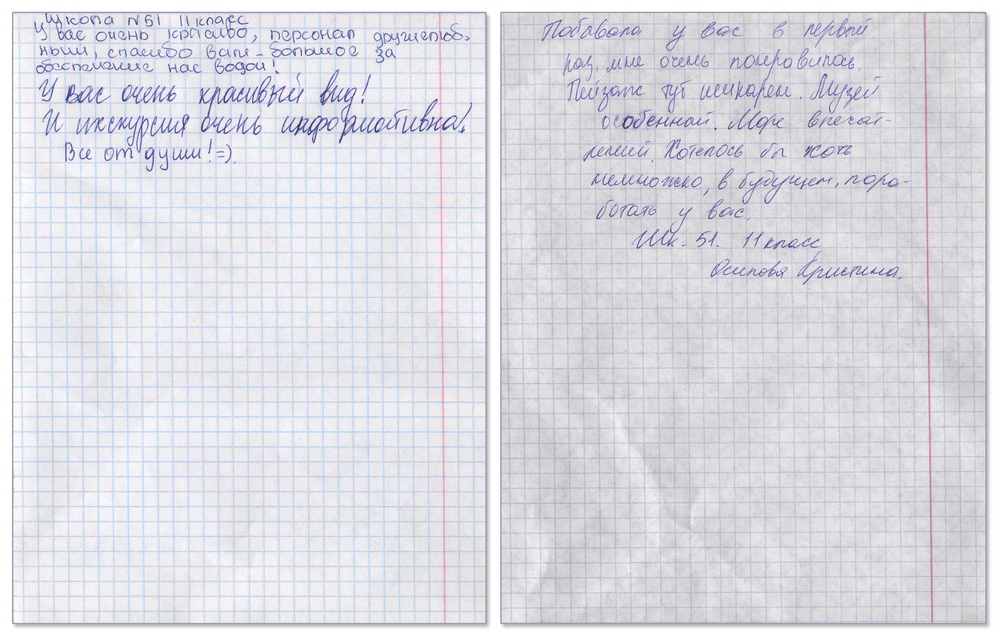 Школа №51 11 класс
У вас очень красиво, персонал дружелюб,
ный, спасибо вам большое за
обеспечение нас водой!
У вас очень красивый вид!
И икскурсия очень информативна!
Все от души!=).
Побывала у вас в первый
раз, мне очень понравилось.
Пейзаж тут шикарен. Музей
особенный. Море впечат-
лений. Хотелось бы хоть
немножко, в будущем, пора-
ботать у вас.
Шк. 51. 11 класс
Осипова Кристина.